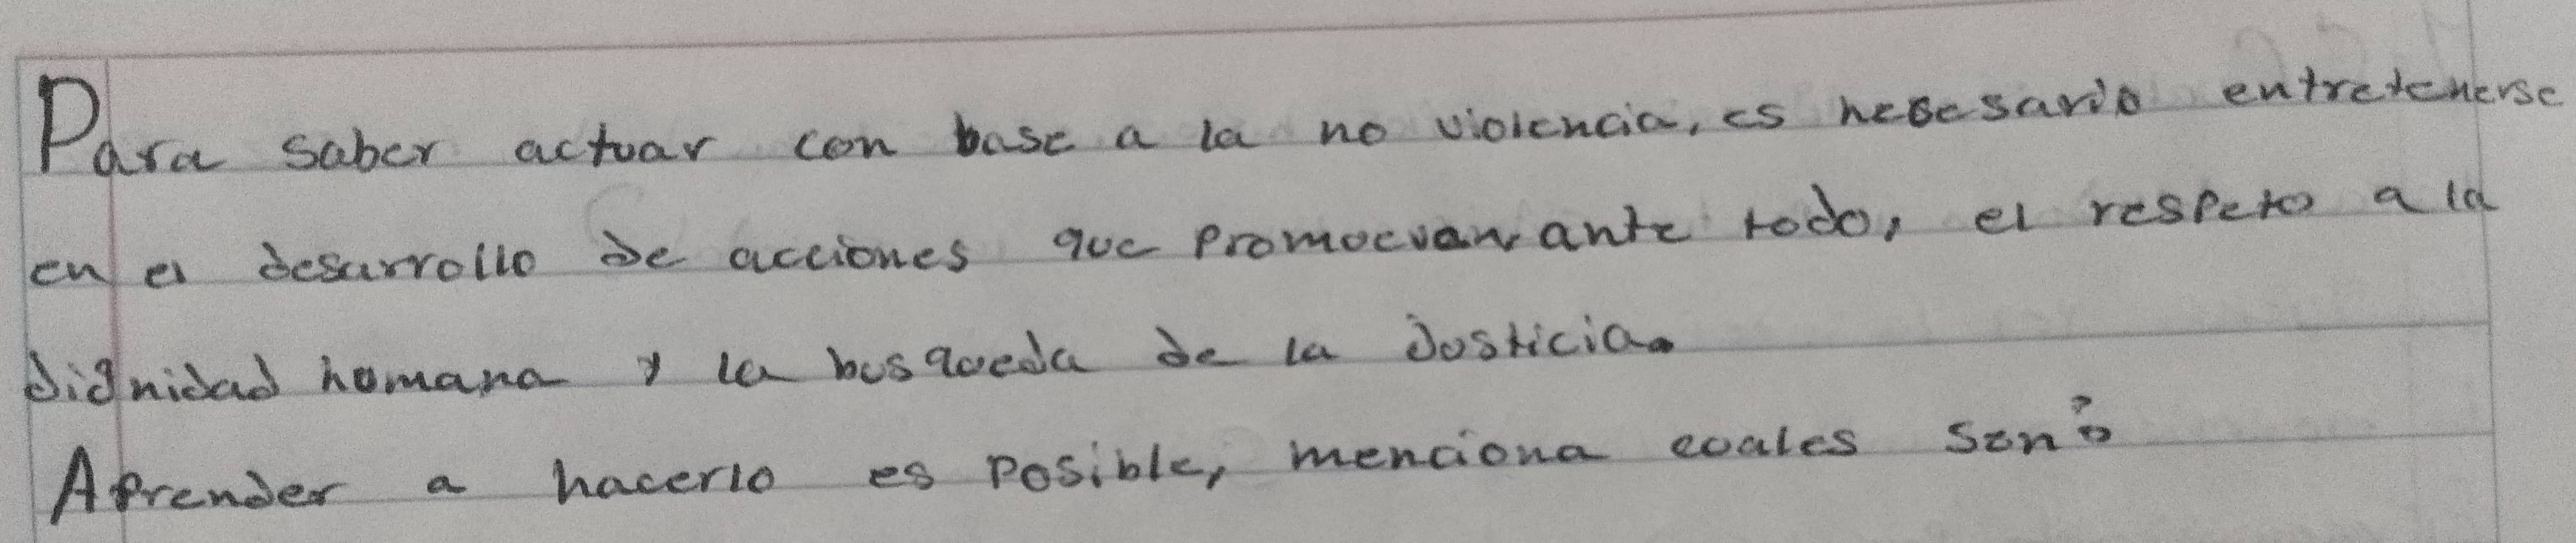 Para saber actuar con base a la no violencia, es nesesario entretenerse
en el desarrollo de acciones que promoevan ante todo, el respeto a la
dignidad homana y la busqueda de la Justicia.
Aprender a hacerlo es posible, menciona cuales son: